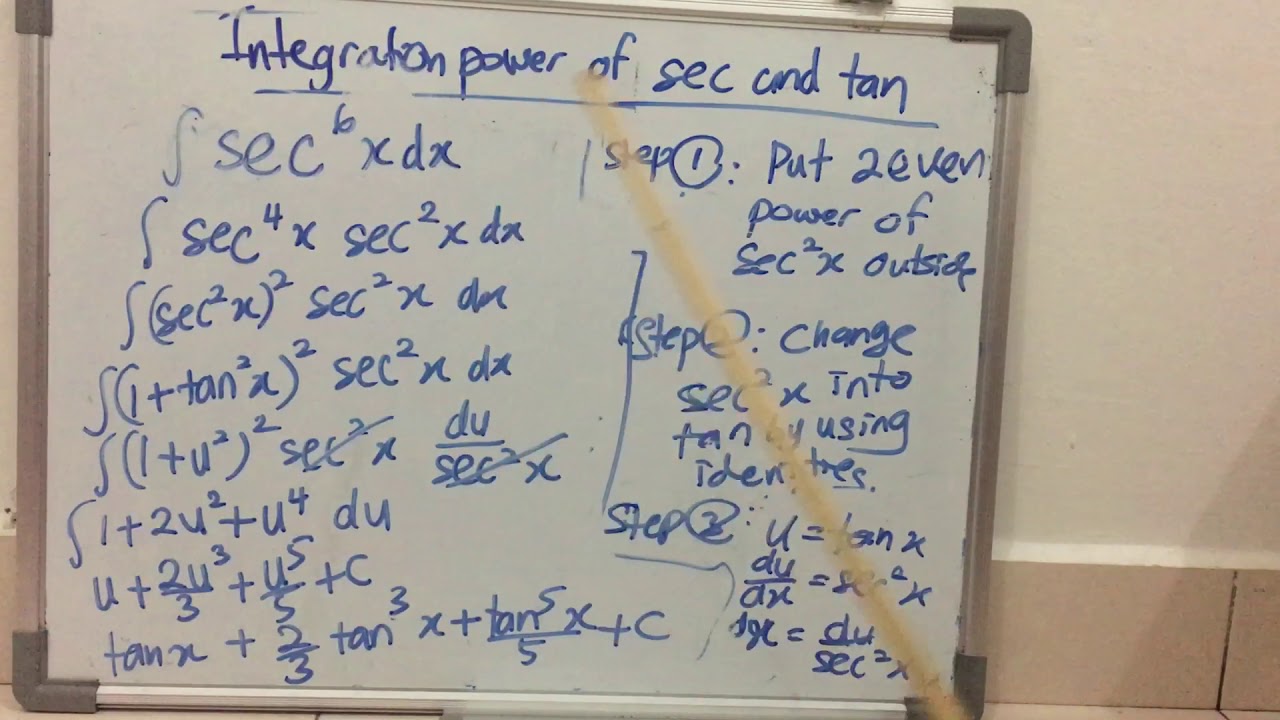 Integration power of sec and tan
∫ sec⁶ x dx
∫ sec⁴x sec²x dx
∫(sec²x)² sec²x dx
∫(1+tan²x)² sec²x dx
∫(1+u²)² sec²x du/sec²x
∫1+2u²+u⁴ du
u+2u³/3+u⁵/5+C
tanx + 2/3 tan³x+tan⁵x/5+C
Step ①: Put 2 even
power of
Sec²x outside
Step ②: Change
sec²x into
tan by using
identities.
Step ③: u=tanx
du/dx=sec²x
dx=du/sec²x